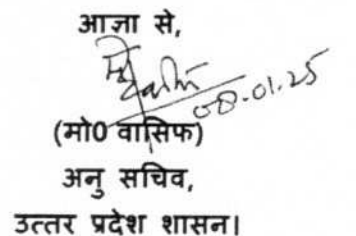 आज्ञा से,
08.01.25
(मो0 वासिफ)
अनु सचिव,
उत्तर प्रदेश शासन।